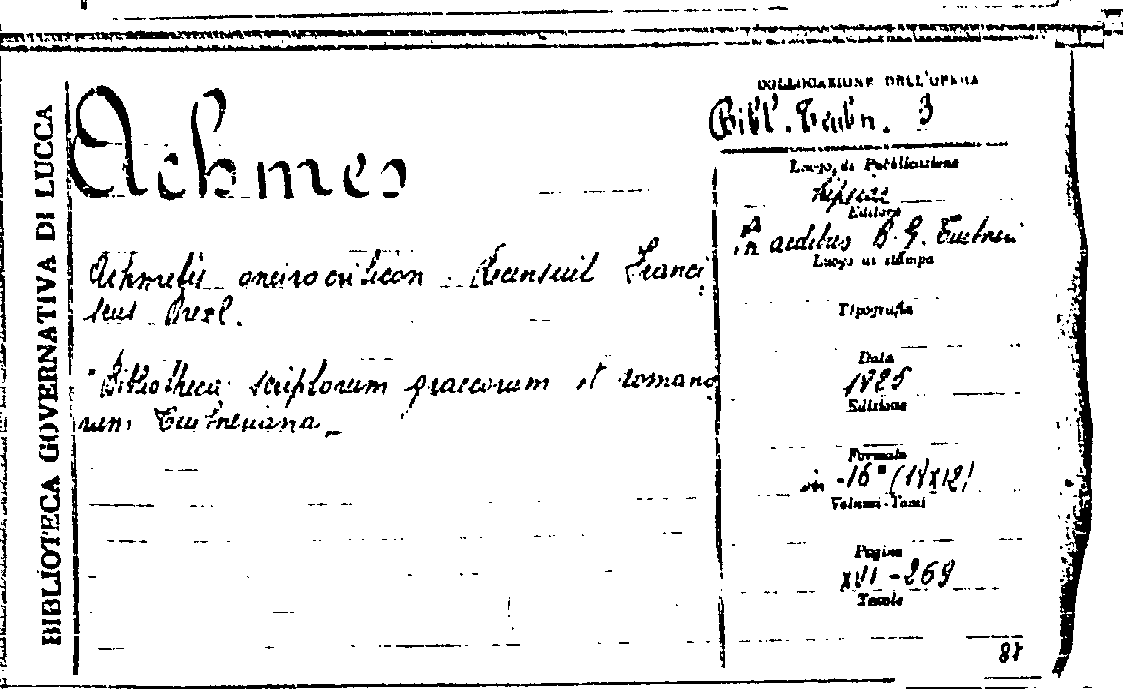 BIBLIOTECA GOVERNATIVA DI LUCCA
Achmes
Achmetis oneirocriticon. Recensuit Franci
scus Drexl.
"Bibliotheca scriptorum graecorum et romano
rum Teubneriana_
COLLOCAZIONE DELL'OPERA
Bibl. Teubn. 3
Luogo di Pubblicazione
Lipsiae
Editore
in aedibus B. G. Teubneri
Luogo di stampa
Tipografia
Data
1925
Edizione
Formato
in -16° (17x12)
Volumi-Tomi
Pagine
XVI - 269
Tavole